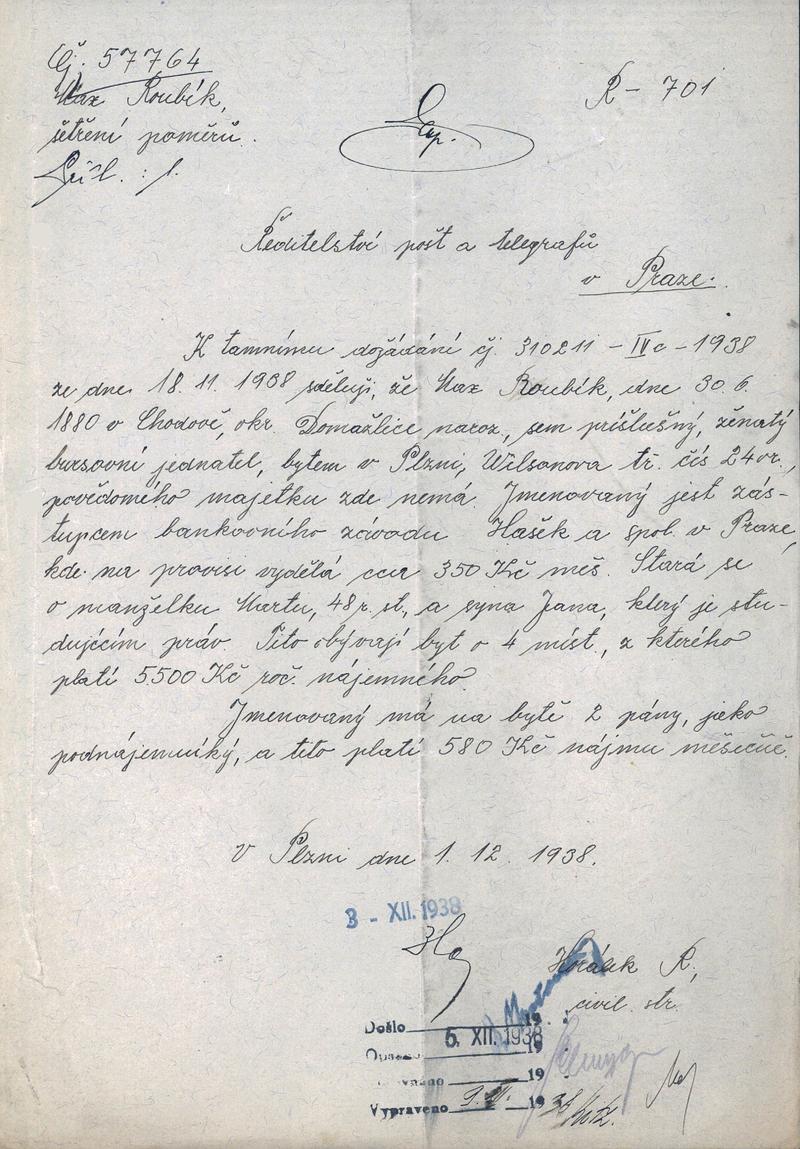 Čj. 57764
Max Roubík,
šetření poměrů.
Příl. : 1.
R - 701
Exp.
Ředitelství pošt a telegrafů
v Praze.
K tamnímu dožádání čj. 310211 - IVc - 1938
ze dne 18. 11. 1938 sděluji, že Max Roubík, dne 30. 6.
1880 v Chodově, okr. Domažlice naroz., sem příslušný, ženatý
bursovní jednatel, bytem v Plzni, Wilsonova tř. čís 24 or.,
povědomého majetku zde nemá. Jmenovaný jest zás-
tupcem bankovního závodu Hašek a spol. v Praze,
kde na provisi vydělá cca 350 Kč měs. Stará se
o manželku Martu, 48 r. st., a syna Jana, který je stu-
dujícím práv. Tito obývají byt o 4 míst., z kterého
platí 5.500 Kč roč. nájemného.
Jmenovaný má na bytě 2 pány, jako
podnájemníky, a tito platí 580 Kč nájmu měsíčně.
V Plzni dne 1. 12. 1938.
3 - XII. 1938
Horálek R.,
civil. str.
Došlo 5. XII. 1938 19
19
19
Vypraveno 19